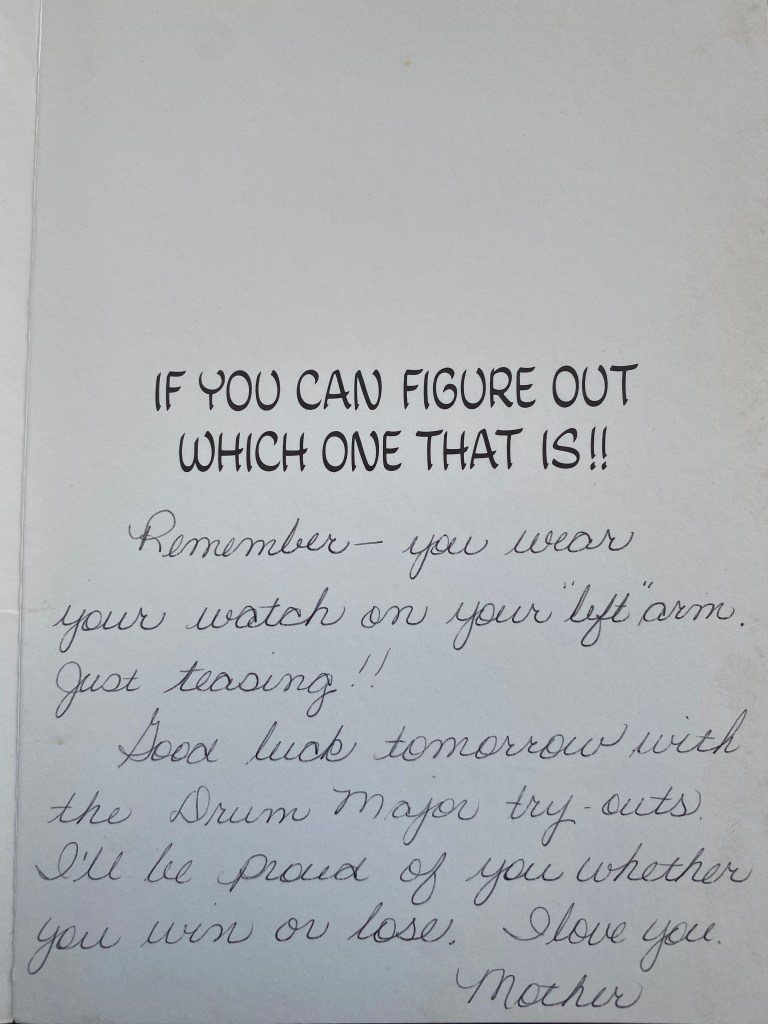 IF YOU CAN FIGURE OUT
WHICH ONE THAT IS!!
Remember— you wear
your watch on your "left" arm.
Just teasing!!
Good luck tomorrow with
the Drum Major try-outs.
I'll be proud of you whether
you win or lose. I love you.
Mother